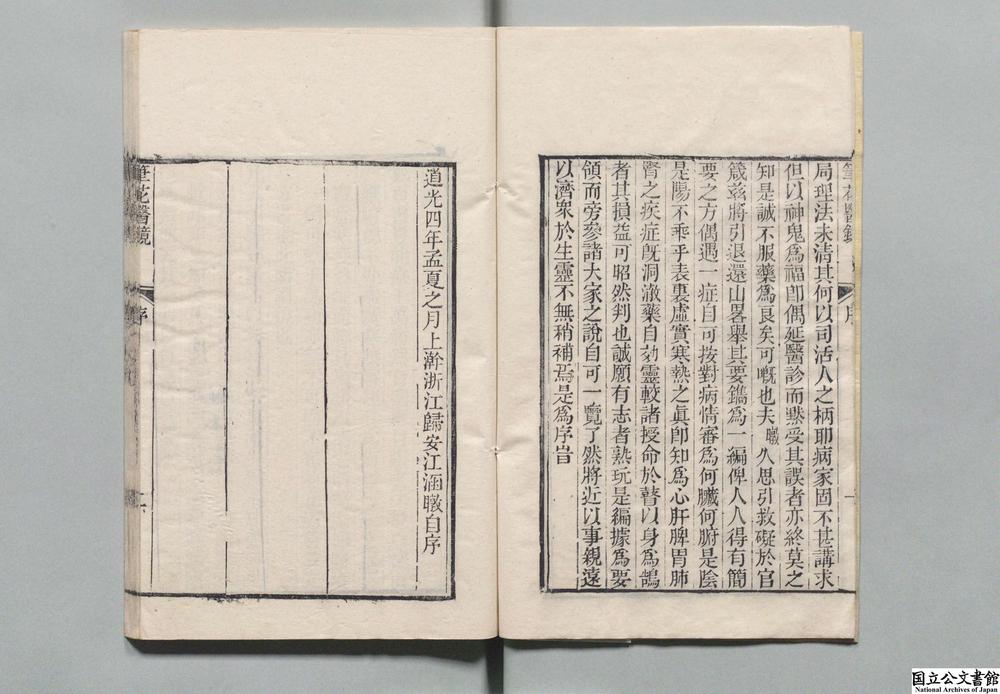 局理法未清其何以司活人之柄耶病家固不甚講求
但以神鬼爲福卽偶延醫診而黙受其誤者亦終莫之
知是誠不服藥爲良矣可嘅也夫暾久思引救礙於官
箴茲將引退還山畧舉其要鐫爲一編俾人人得有簡
要之方偶遇一症自可按對病情審爲何臟何腑是陰
是陽不乖乎表裏虛實寒熱之眞卽知爲心肝脾胃肺
腎之疾症旣洞澈藥自効靈較諸授命於瞽以身爲鵠
者其損益可昭然判也誠願有志者熟玩是編據爲要
領而旁參諸大家之說自可一覽了然將近以事親遠
以濟衆於生靈不無稍補焉是爲序旹
道光四年孟夏之月上澣浙江歸安江涵暾自序
筆花醫鏡
序
二
国立公文書館
National Archives of Japan